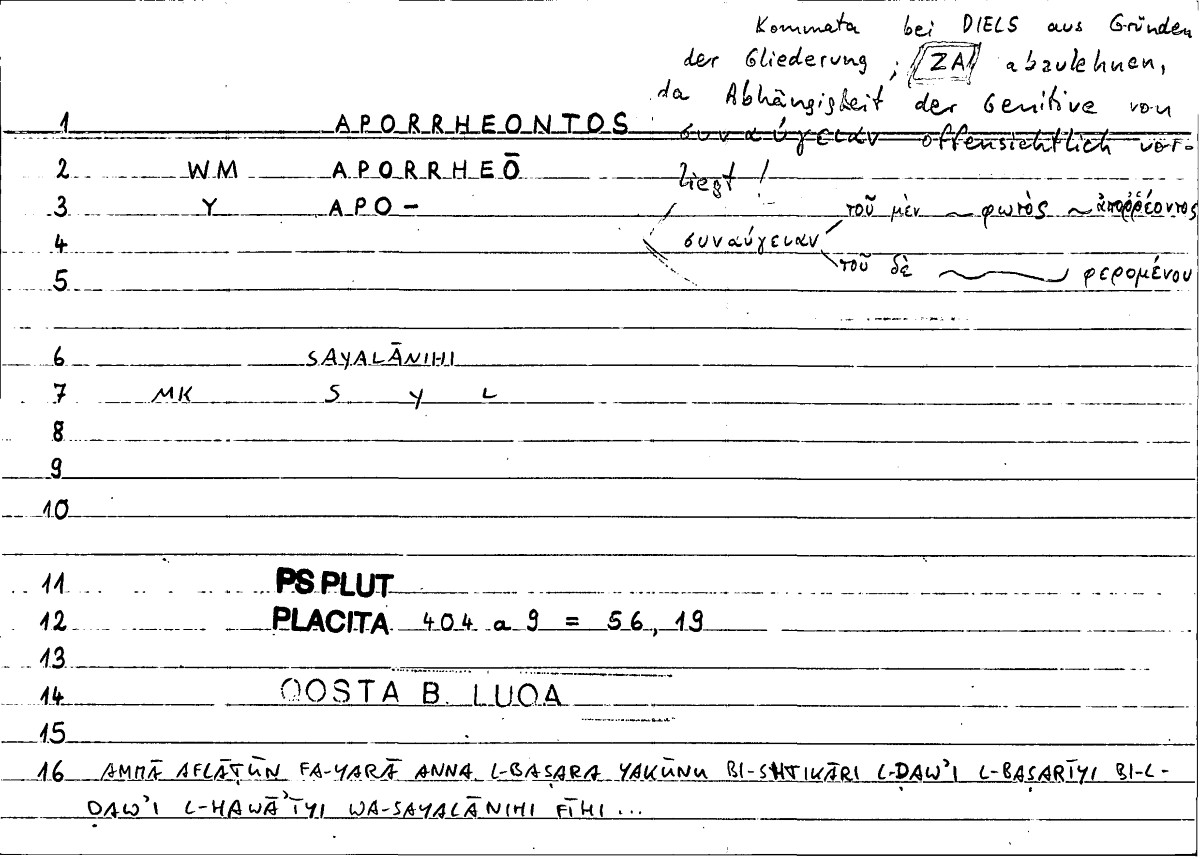 Kommata bei DIELS aus Gründen
der Gliederung; ZA abzulehnen,
da Abhängigkeit der Genitive von
συναύγειαν offensichtlich vor-
liegt!
1 APORRHEONTOS
2 WM APORRHEŌ
3 Y APO-
τοῦ μὲν ~ φωτὸς ~ ἀπορρέοντος
4 συναύγειαν
τοῦ δὲ ~ φερομένου
5
6 SAYALĀNIHI
7 MK S Y L
8
9
10
11 PS PLUT
12 PLACITA 404 a 9 = 56, 19
13
14 QOSTA B. LUQA
15
16 AMMĀ AFLĀṬŪN FA-YARĀ ANNA L-BAṢARA YAKŪNU BI-SHTIKĀRI L-ḌAW'I L-BAṢARĪYI BI-L-
ḌAW'I L-HAWĀ'ĪYI WA-SAYALĀNIHI FĪHI ...